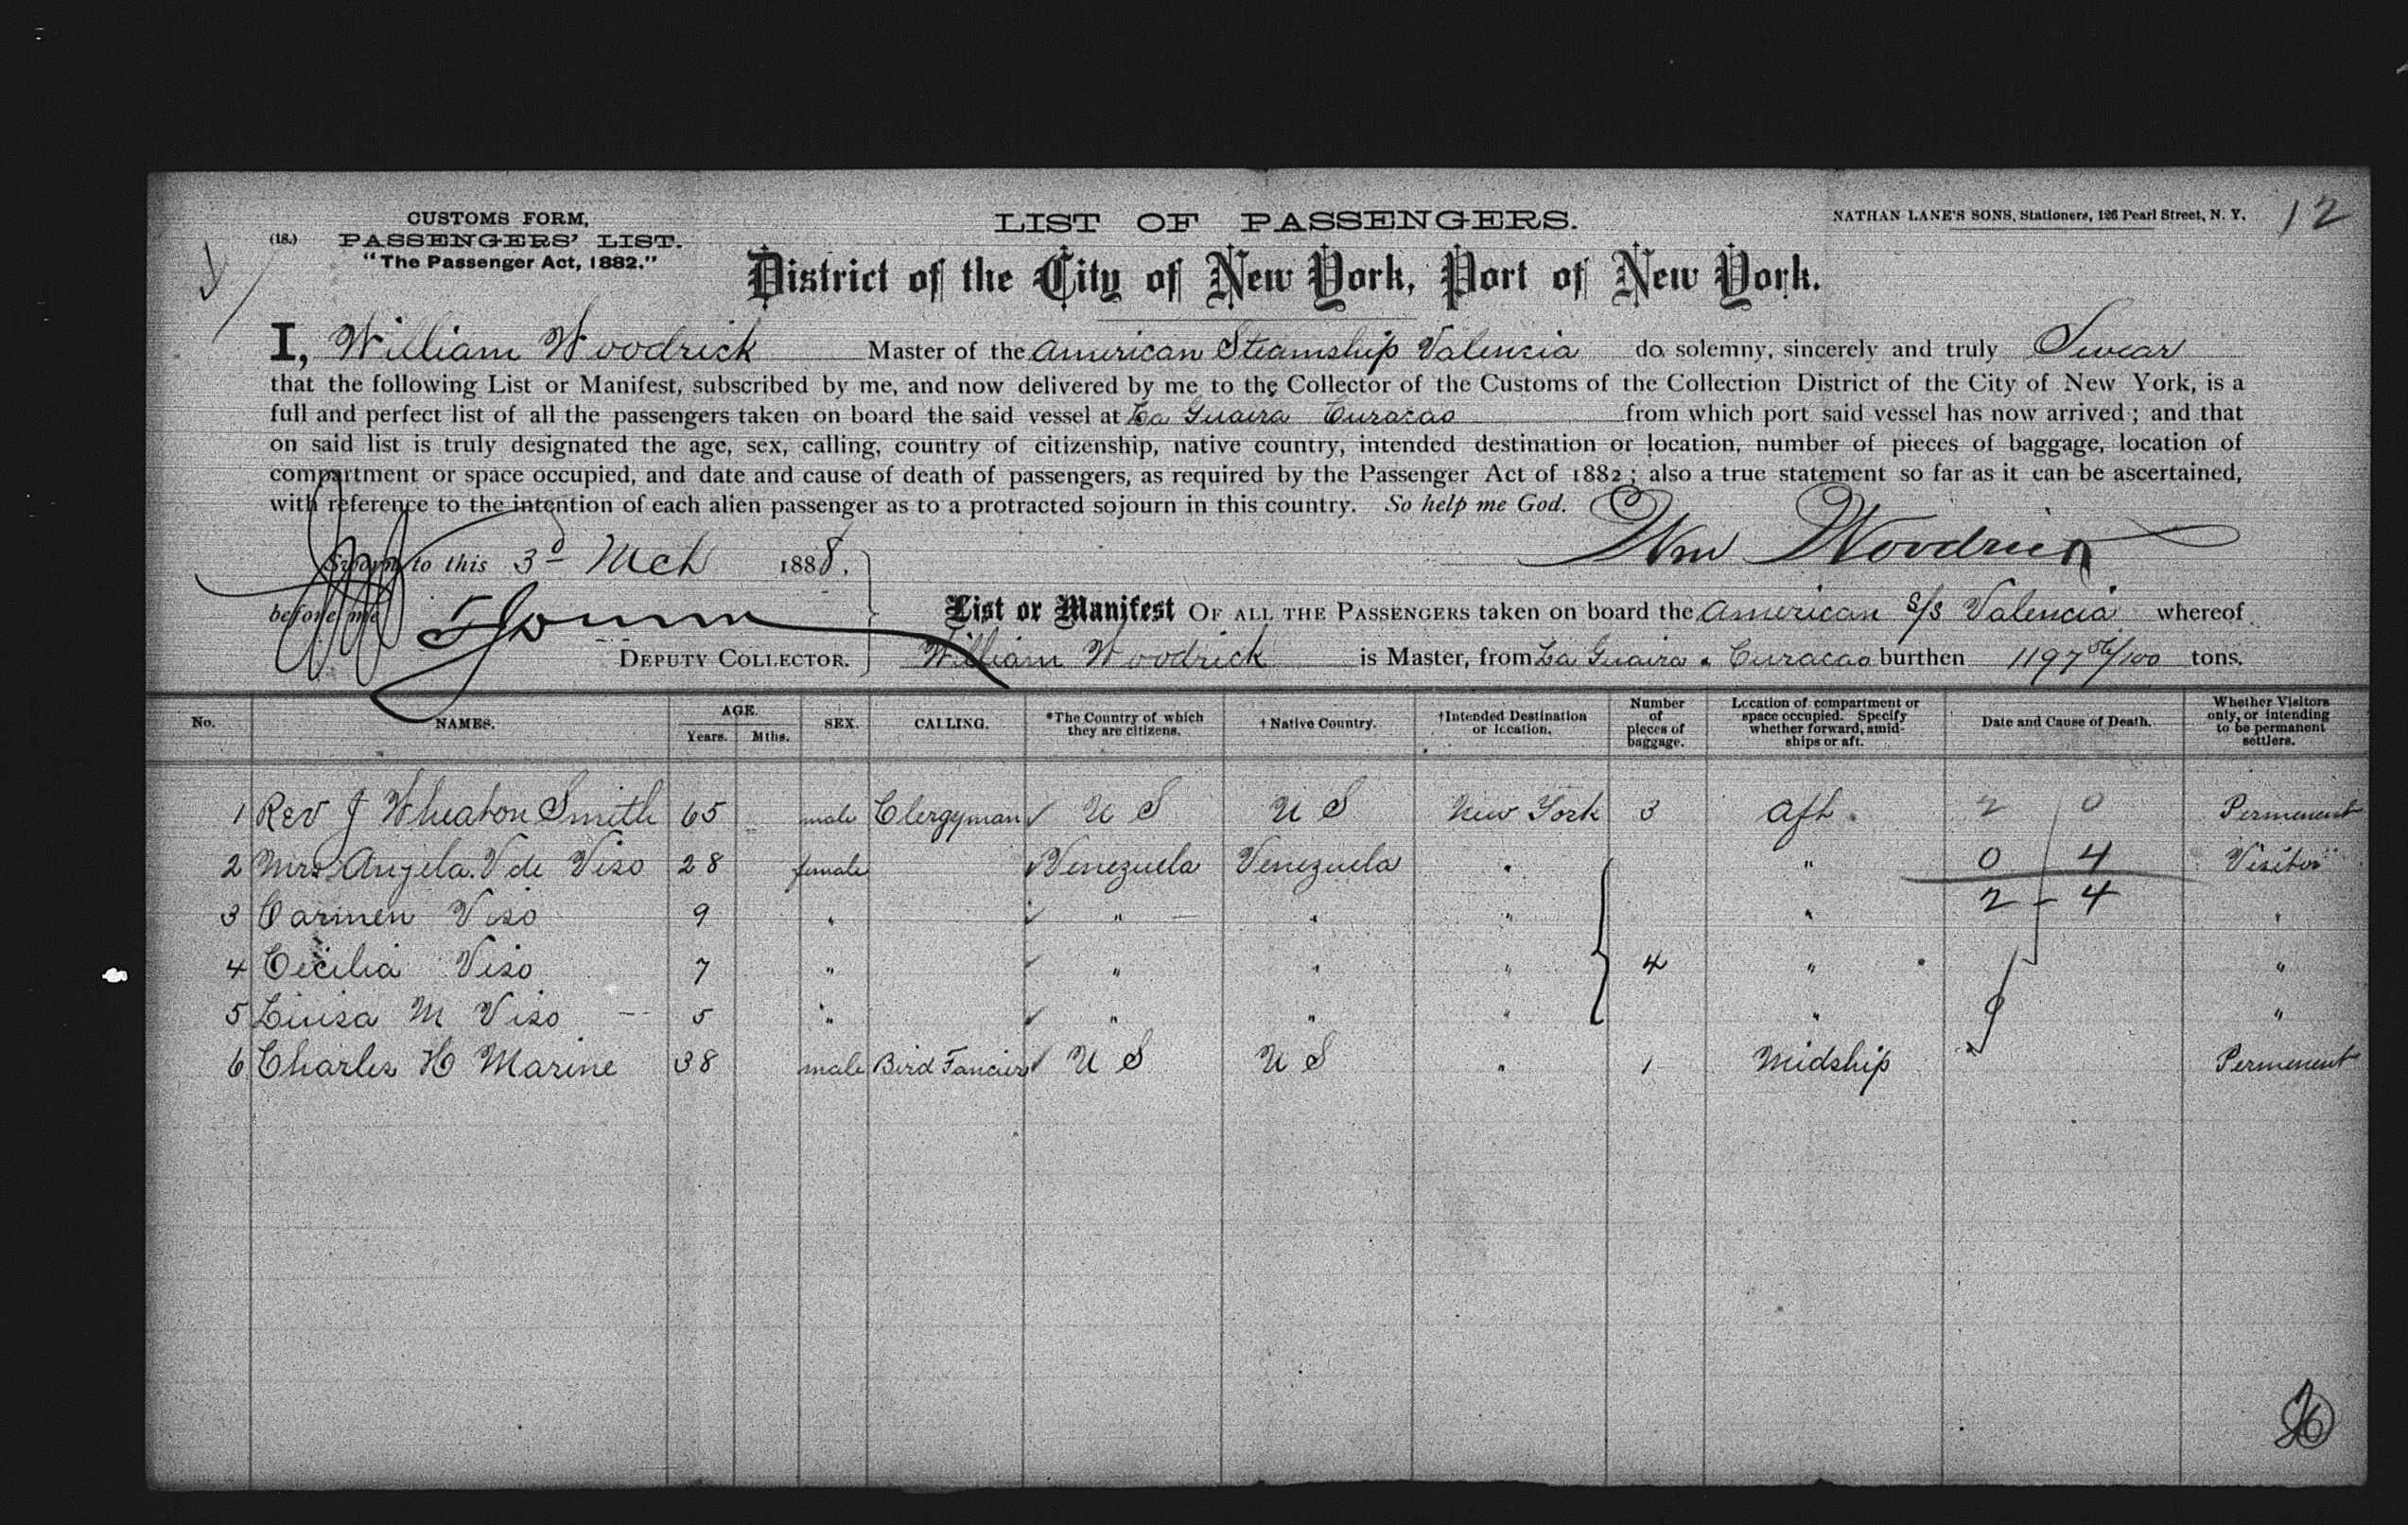 CUSTOMS FORM,
(18.) PASSENGERS' LIST.
"The Passenger Act, 1882."
LIST OF PASSENGERS.
NATHAN LANE'S SONS, Stationers, 126 Pearl Street, N. Y.
12
District of the City of New York, Port of New York.
I, William Woodrick Master of the American Steamship Valencia do solemny, sincerely and truly Swear
that the following List or Manifest, subscribed by me, and now delivered by me to the Collector of the Customs of the Collection District of the City of New York, is a
full and perfect list of all the passengers taken on board the said vessel at La Guaira Curacao from which port said vessel has now arrived; and that
on said list is truly designated the age, sex, calling, country of citizenship, native country, intended destination or location, number of pieces of baggage, location of
compartment or space occupied, and date and cause of death of passengers, as required by the Passenger Act of 1882; also a true statement so far as it can be ascertained,
with reference to the intention of each alien passenger as to a protracted sojourn in this country. So help me God.
Wm Woodrick
Sworn to this 3d Mch 1888.
before me
DEPUTY COLLECTOR.
List or Manifest OF ALL THE PASSENGERS taken on board the American S/S Valencia whereof
William Woodrick is Master, from La Guaira & Curacao burthen 1197 56/100 tons.
No. NAMES. AGE. Years. Mths. SEX. CALLING. *The Country of which they are citizens. †Native Country. †Intended Destination or location. Number of pieces of baggage. Location of compartment or space occupied. Specify whether forward, amidships or aft. Date and Cause of Death. Whether Visitors only, or intending to be permanent settlers.
1 Rev J Wheaton Smith 65 male Clergyman ✓ U S U S New York 3 Aft 2 0 Permenent
2 Mrs Angela V de Viso 28 female ✓ Venezuela Venezuela " " 0 4 Visitor
3 Carmen Viso 9 " ✓ " " " " 2 - 4 "
4 Cecilia Viso 7 " ✓ " " " 4 " "
5 Luisa M Viso 5 " ✓ " " " " "
6 Charles H Marine 38 male Bird Fancier ✓ U S U S " 1 Midship Permenent